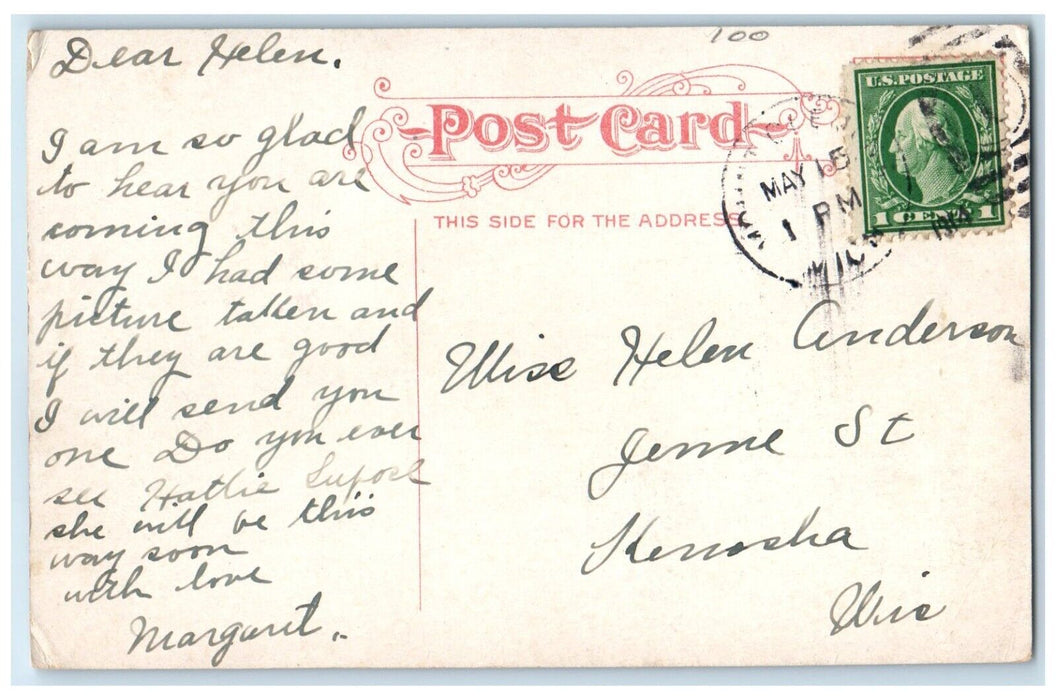 100
Dear Helen.
I am so glad
to hear you are
coming this
way I had some
picture taken and
if they are good
I will send you
one Do you ever
see Hattie
she will be this
way soon
with love
Margaret.
Post Card
THIS SIDE FOR THE ADDRESS
MAY 15
1 PM
MICH
U.S. POSTAGE
1 CENT 1
Miss Helen Anderson
Jenne St
Kenosha
Wis